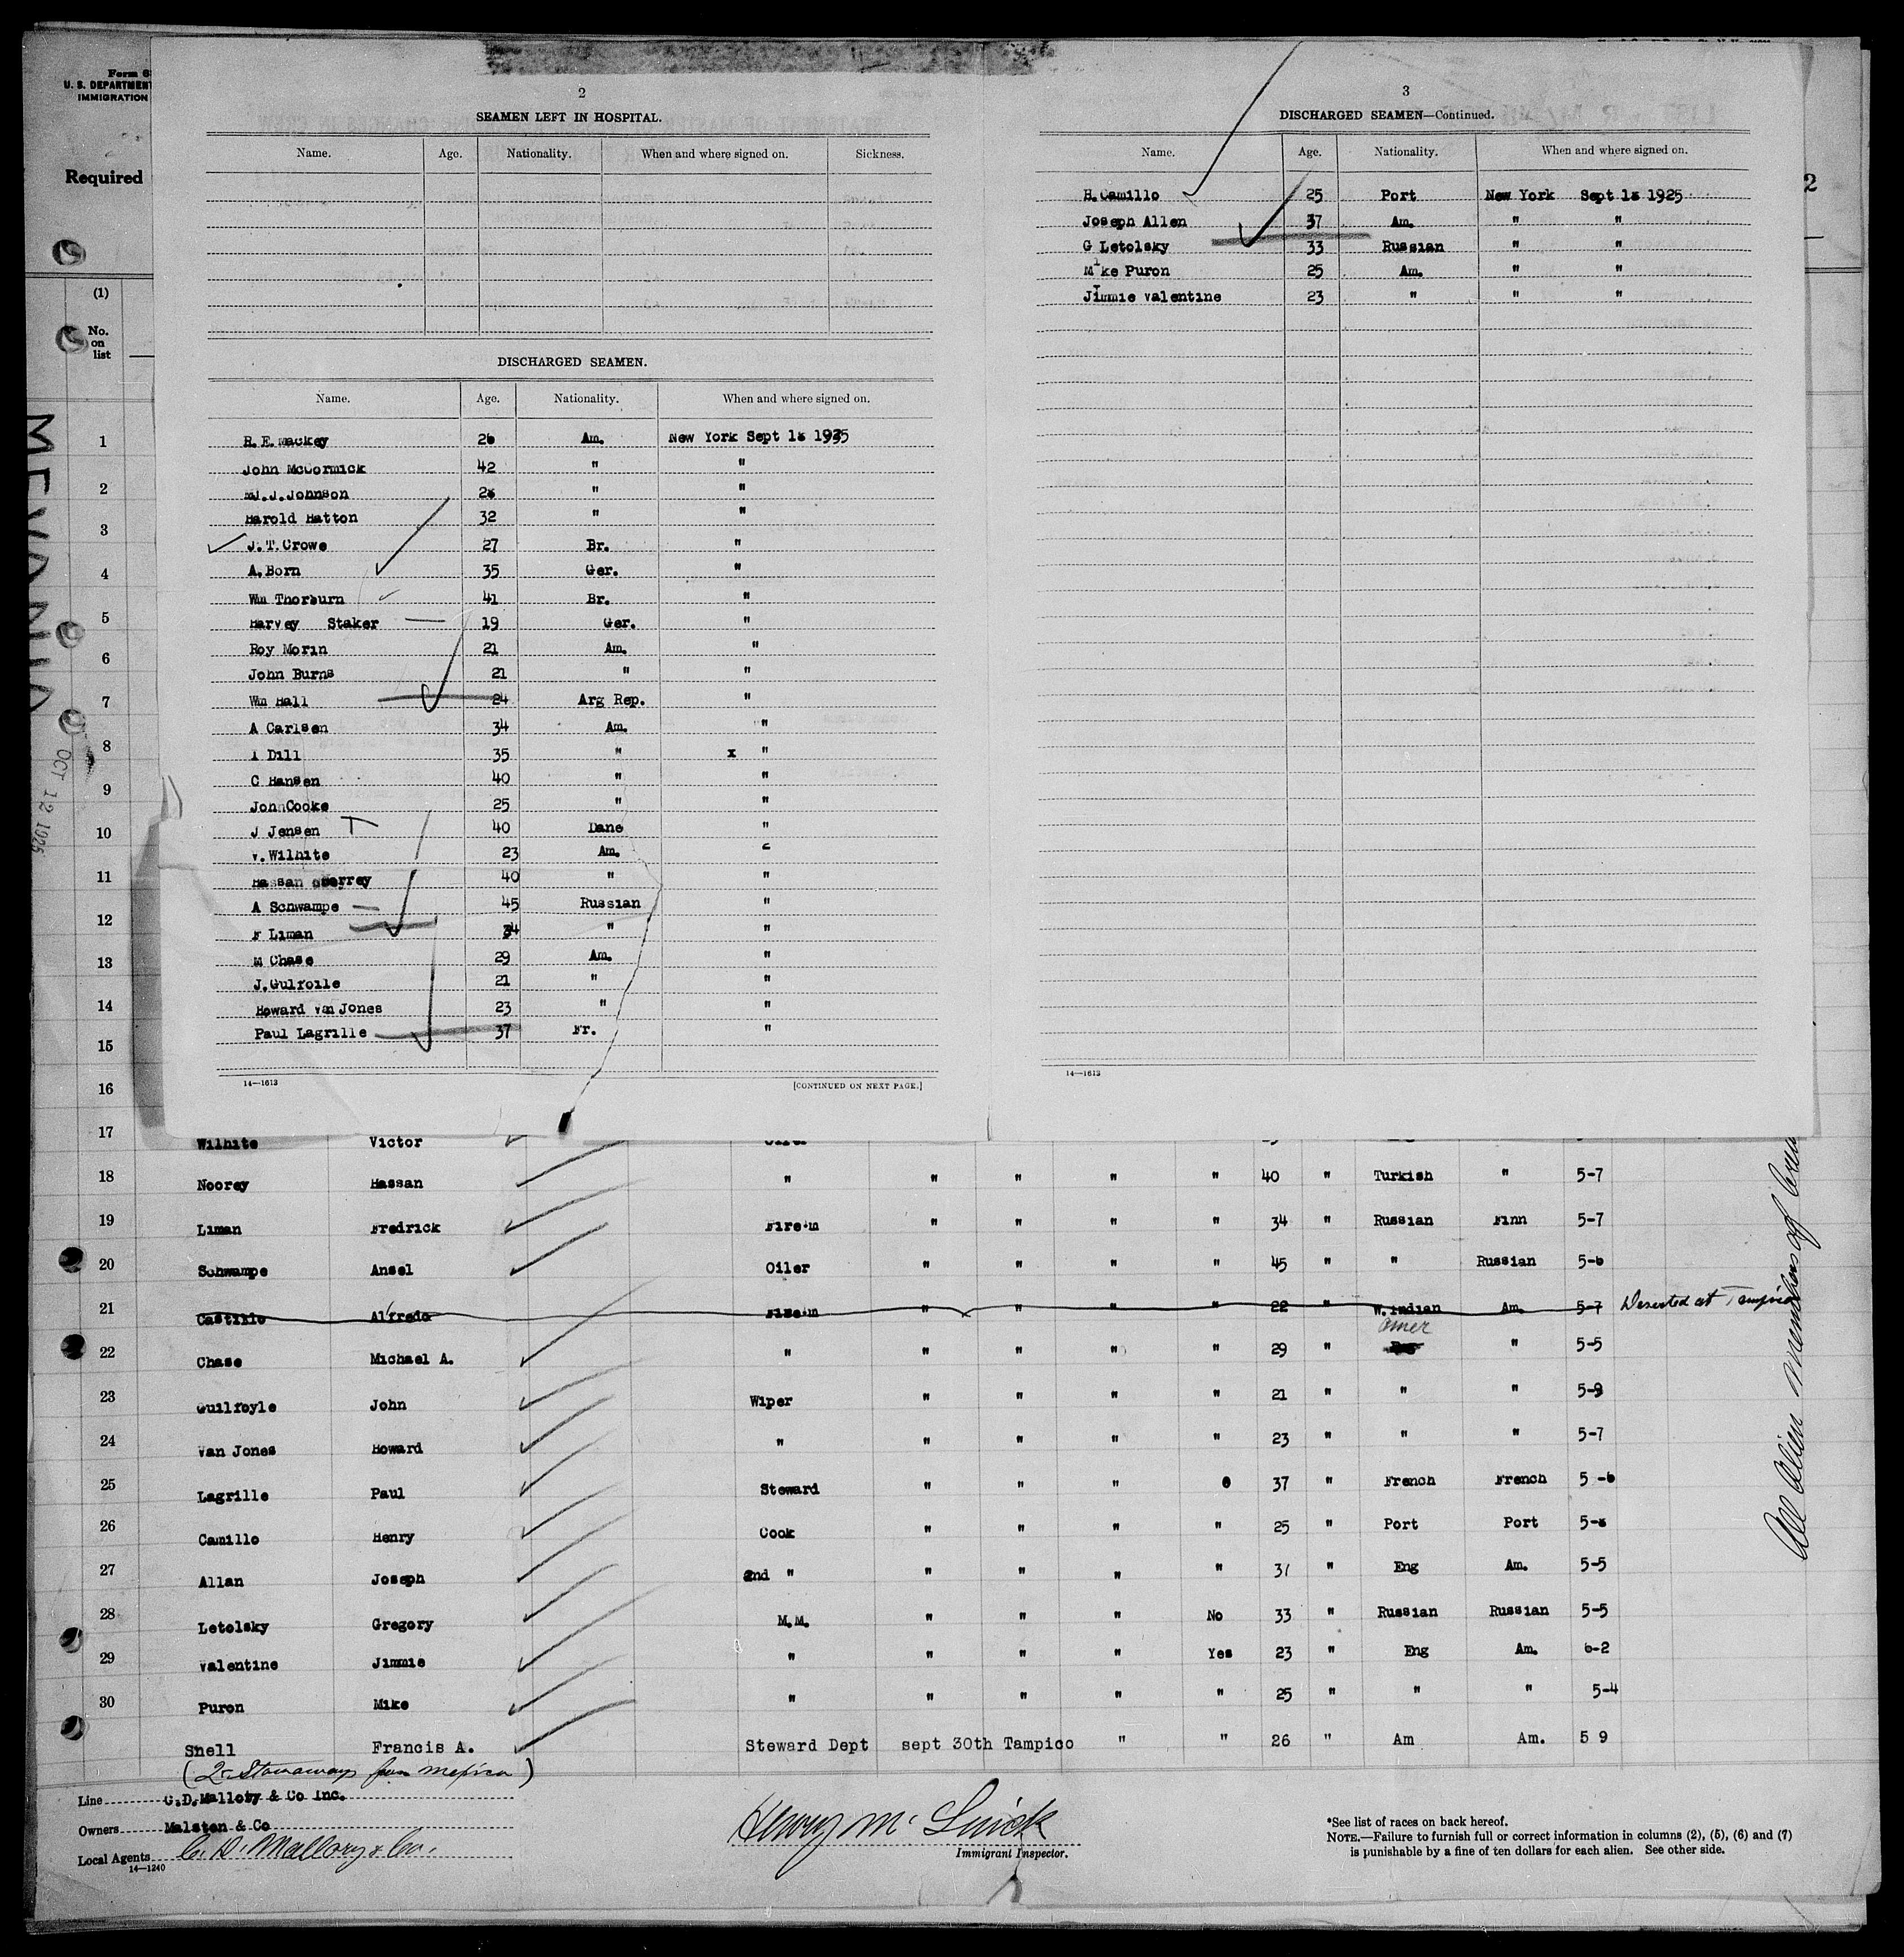 Form 6
U. S. DEPARTMENT
IMMIGRATION
Required
2
SEAMEN LEFT IN HOSPITAL.
Name. Age. Nationality. When and where signed on. Sickness.
DISCHARGED SEAMEN.
Name. Age. Nationality. When and where signed on.
R.E.Mackey 26 Am. New York Sept 15 1925
John McCormick 42 " "
J.Johnson " "
Harold Hatton 32 " "
J.T.Crowe 27 Br. "
A.Born 35 Ger. "
Wm Thorburn 41 Br. "
Harvey Staker 19 Ger. "
Roy Morin 21 Am. "
John Burns 21 " "
Wm Hall 24 Arg Rep. "
A Carlsen 34 Am. "
I Dill 35 " x "
C Hansen 40 " "
Jon Cooke 25 " "
J Jensen 40 Dane "
V.Wilhite 23 Am. "
Hassan 40 " "
A Schwampe 45 Russian "
F Liman 34 " "
M Chase 29 Am. "
J.Gulfoile 21 " "
Howard Van Jones 23 " "
Paul Lagrille 37 Fr. "
14—1613 [CONTINUED ON NEXT PAGE.]
3
DISCHARGED SEAMEN—Continued.
Name. Age. Nationality. When and where signed on.
H.Camillo 25 Port New York Sept 15 1925
Joseph Allen 37 Am. " "
G Letolsky 33 Russian " "
Mike Puron 25 Am. " "
Jimmie Valentine 23 " " "
14—1613
2
(1)
No.
on
list
1
2
3
4
5
6
7
8
9
10
11
12
13
14
15
16
OCT 12 1925
17 Wilhite Victor Oiler
18 Noorey Hassan " " " " " 40 " Turkish " 5-7
19 Liman Fredrick Firem " " " " 34 " Russian Finn 5-7
20 Schwampe Ansel Oiler " " " " 45 " " Russian 5-6
21 Castillo Alfredo Firem " " " " 22 " W.Indian Am. 5-7 Deserted at Tampico
22 Chase Michael A. " " " " " 29 " Amer " 5-5
23 Guilfoyle John Wiper " " " " 21 " " " 5-9
24 Van Jones Howard " " " " " 23 " " " 5-7
25 Lagrille Paul Steward " " " 37 " French French 5-6
26 Camillo Henry Cook " " " " 25 " Port Port
27 Allan Joseph 2nd " " " " " 37 " Eng Am. 5-5
28 Letolsky Gregory M.M. " " " No 33 " Russian Russian 5-5
29 Valentine Jimmie " " " " Yes 23 " Eng Am. 6-2
30 Puron Mike " " " " " 25 " " " 5-4
Snell Francis A. Steward Dept sept 30th Tampico " " 26 " Am Am. 5 9
(2 Stowaways from Mexico)
All Alien members of Crew
Line C.D.Mallory & Co Inc.
Owners Malston & Co
Local Agents C. D. Mallory & Co.
14—1240
Henry M.
Immigrant Inspector.
*See list of races on back hereof.
NOTE.—Failure to furnish full or correct information in columns (2), (5), (6) and (7)
is punishable by a fine of ten dollars for each alien. See other side.